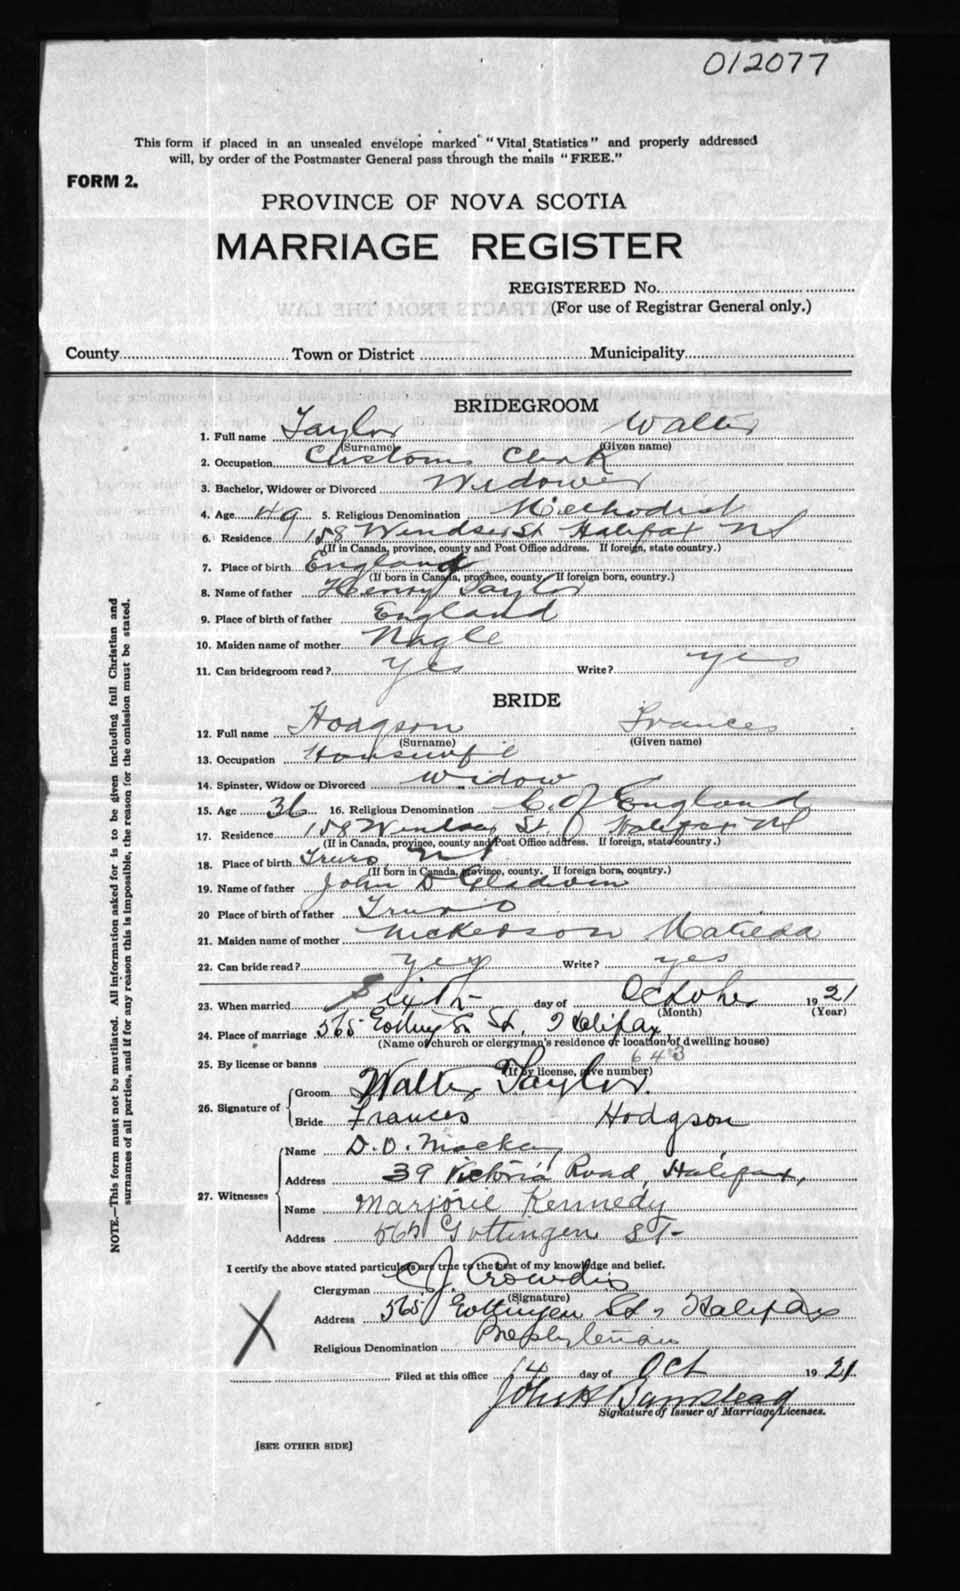 012077
This form if placed in an unsealed envelope marked "Vital Statistics" and properly addressed
will, by order of the Postmaster General pass through the mails "FREE."
FORM 2.
PROVINCE OF NOVA SCOTIA
MARRIAGE REGISTER
REGISTERED No.
(For use of Registrar General only.)
County Town or District Municipality
BRIDEGROOM
1. Full name Taylor Walter
(Surname) (Given name)
2. Occupation Customs Clerk
3. Bachelor, Widower or Divorced Widower
4. Age 49 5. Religious Denomination Methodist
6. Residence 158 Windsor St Halifax NS
(If in Canada, province, county and Post Office address. If foreign, state country.)
7. Place of birth England
(If born in Canada, province, county. If foreign born, country.)
8. Name of father Henry Taylor
9. Place of birth of father England
10. Maiden name of mother Nagle
11. Can bridegroom read? Yes Write? yes
BRIDE
12. Full name Hodgson Frances
(Surname) (Given name)
13. Occupation Housewife
14. Spinster, Widow or Divorced Widow
15. Age 36 16. Religious Denomination C. of England
17. Residence 158 Windsor St. Halifax NS
(If in Canada, province, county and Post Office address. If foreign, state country.)
18. Place of birth Truro, NS
(If born in Canada, province, county. If foreign born, country.)
19. Name of father John D Gladwin
20 Place of birth of father Truro
21. Maiden name of mother Nickerson Matilda
22. Can bride read? yes Write? yes
23. When married Sixth day of October 1921
(Month) (Year)
24. Place of marriage 565 Gottingen St, Halifax
(Name of church or clergyman's residence or location of dwelling house)
25. By license or banns 643
(If by license, give number)
26. Signature of Groom Walter Taylor.
Bride Frances Hodgson
27. Witnesses Name D. O. Mackay
Address 39 Victoria Road, Halifax,
Name Marjorie Kennedy
Address 565 Gottingen St-
I certify the above stated particulars are true to the best of my knowledge and belief.
Clergyman C. J. Crowdis
(Signature)
Address 565 Gottingen St, Halifax
X
Religious Denomination Presbyterian
Filed at this office 14 day of Oct 1921
John H Barnstead
Signature of Issuer of Marriage Licenses.
[SEE OTHER SIDE]
NOTE.—This form must not be mutilated. All information asked for is to be given including full Christian and
surnames of all parties, and if for any reason this is impossible, the reason for the omission must be stated.